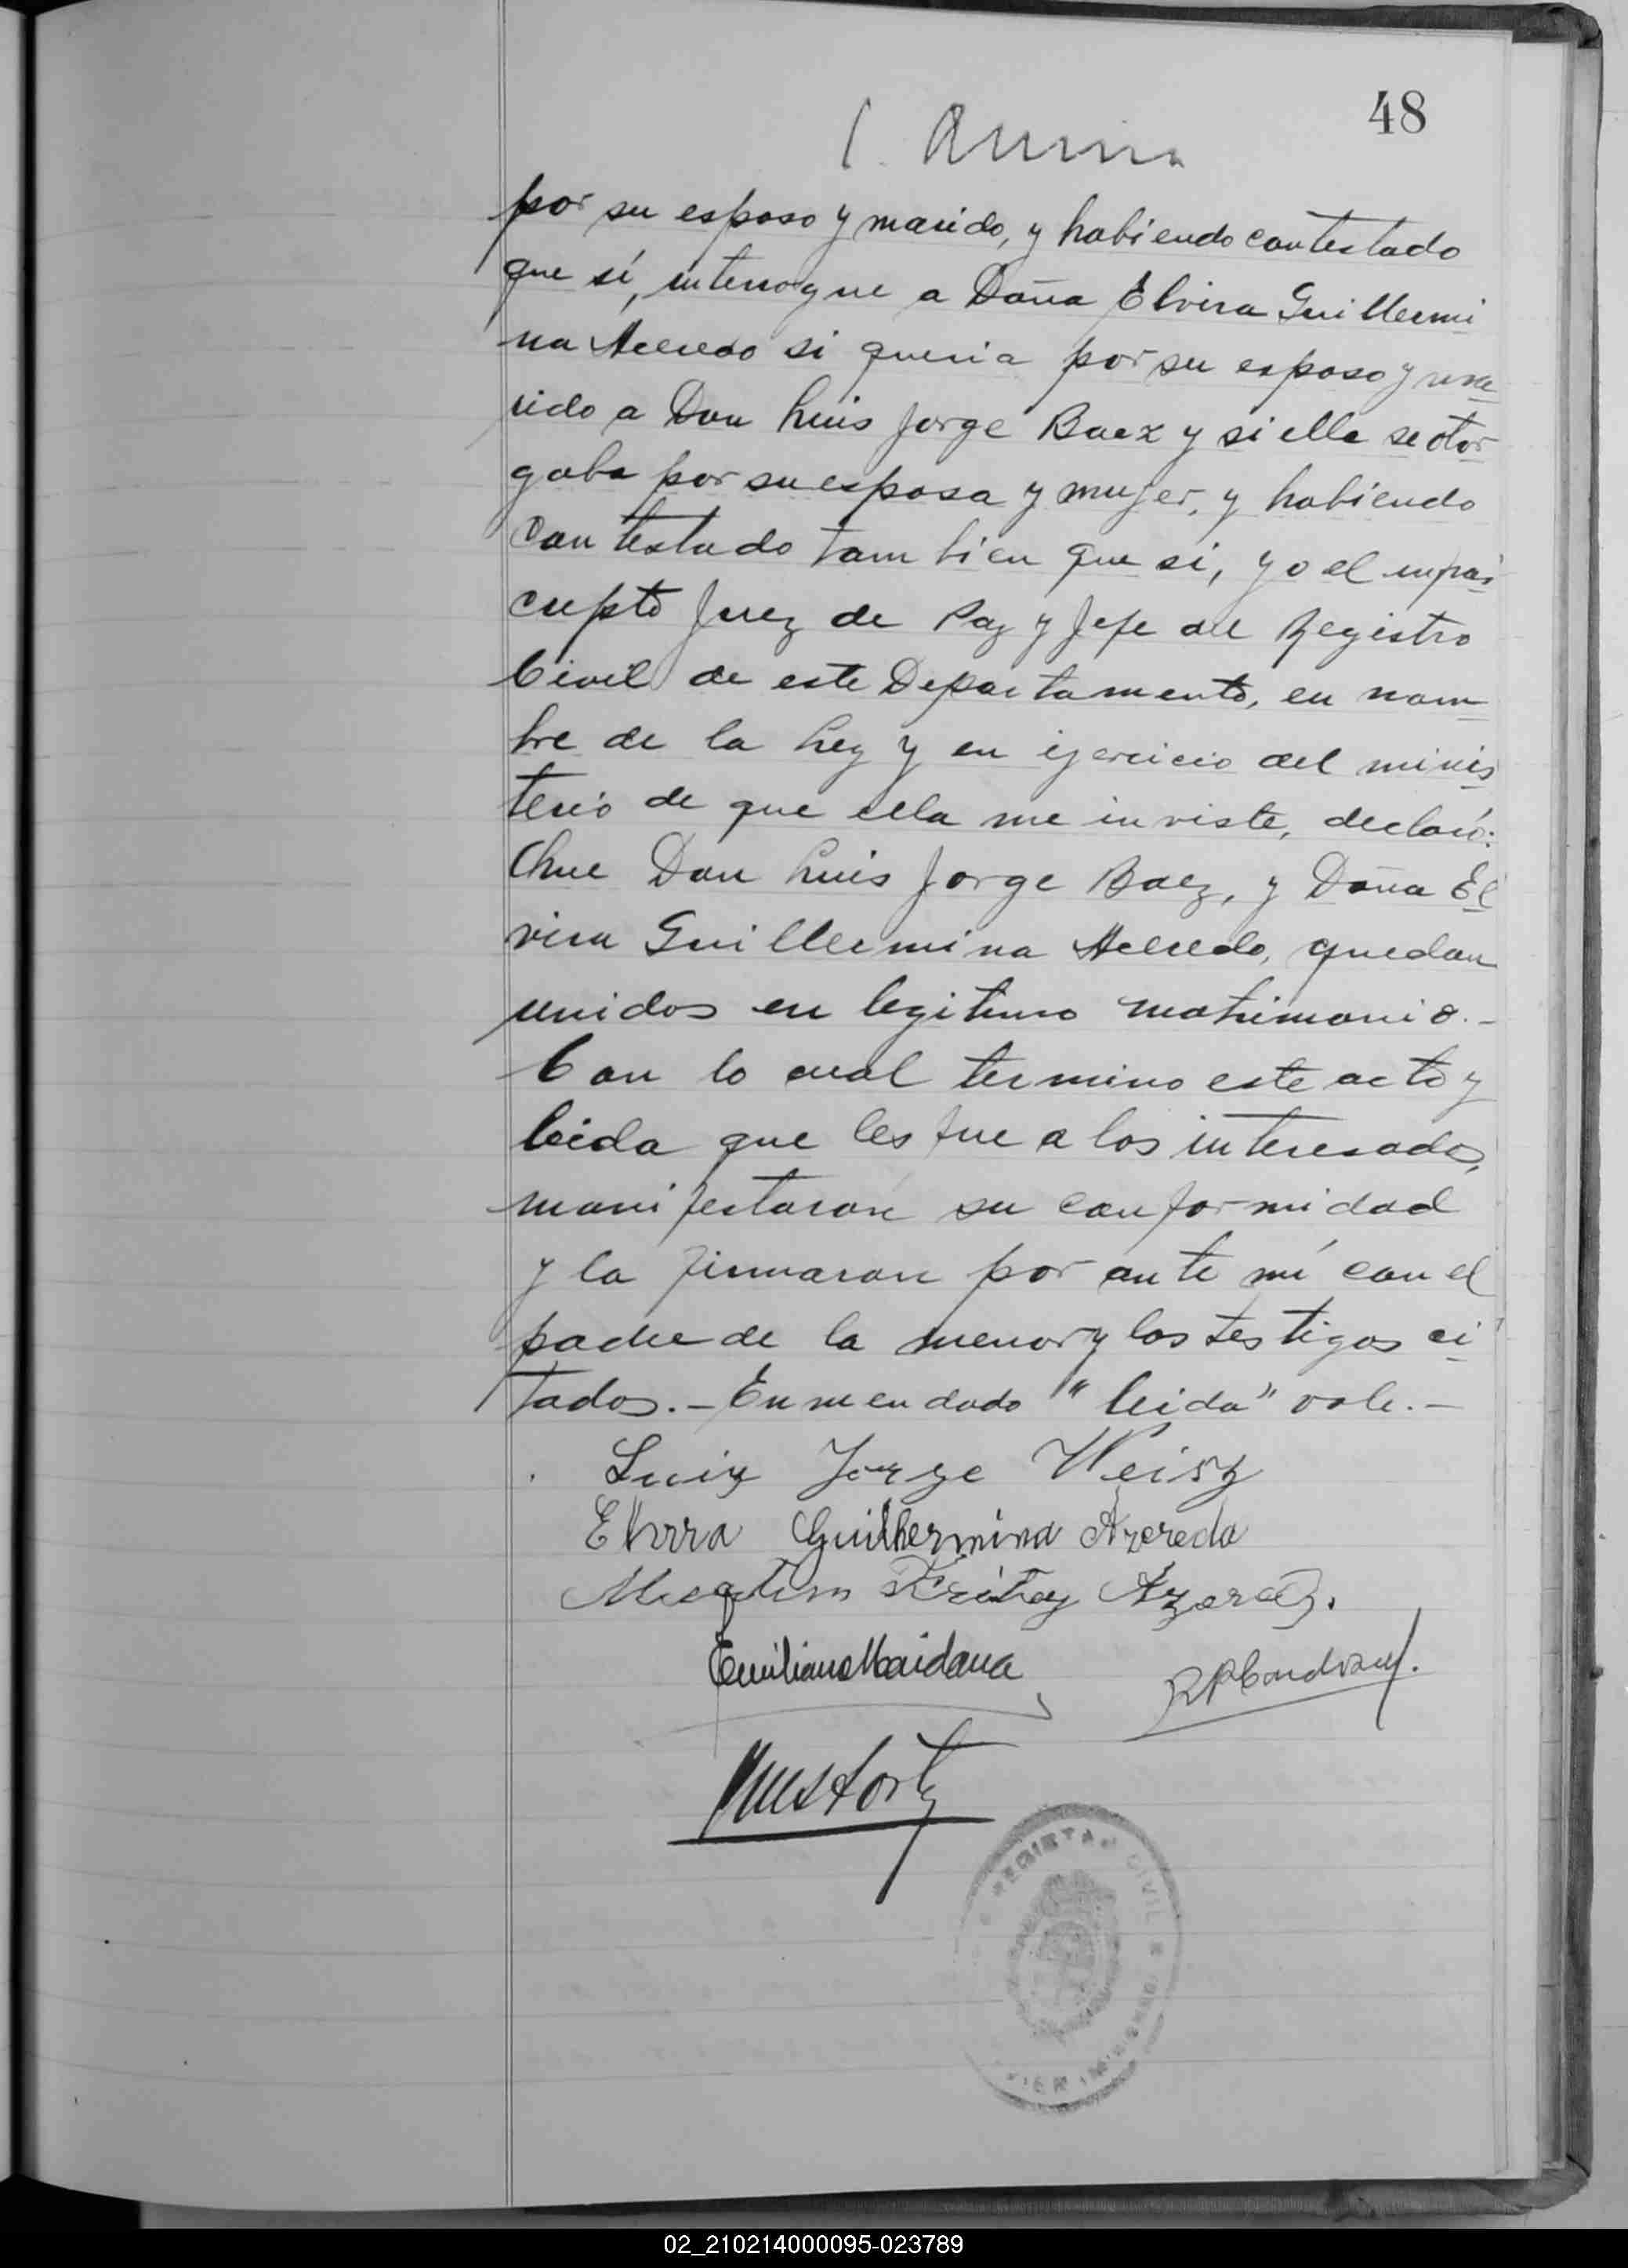 48
por su esposo y marido, y habiendo contestado
que sí, interrogue a Doña Elvira Guillermi
na Acevedo si queria por su esposo y ma
rido a Don Luis Jorge Baez y si ella se otor
gaba por su esposa y mujer, y habiendo
contestado tambien que si, yo el infras
cripto Juez de Paz y Jefe del Registro
Civil de este Departamento, en nom
bre de la Ley y en ejercicio del minis
terio de que ella me inviste, declaró:
Que Don Luis Jorge Baez, y Doña El
vira Guillermina Acevedo, quedan
unidos en legitimo matrimonio.-
Con lo cual termino este acto y
leida que les fue a los interesados,
manifestaron su conformidad
y la firmaron por ante mí con el
padre de la menor y los testigos ci
tados.- Enmendado "leida" vale.-
Luiz Jorge Weisz
Elvira Guilhermina Azeredo
Azeredo.
Emiliano Maidana
REGISTRO CIVIL
02_210214000095-023789